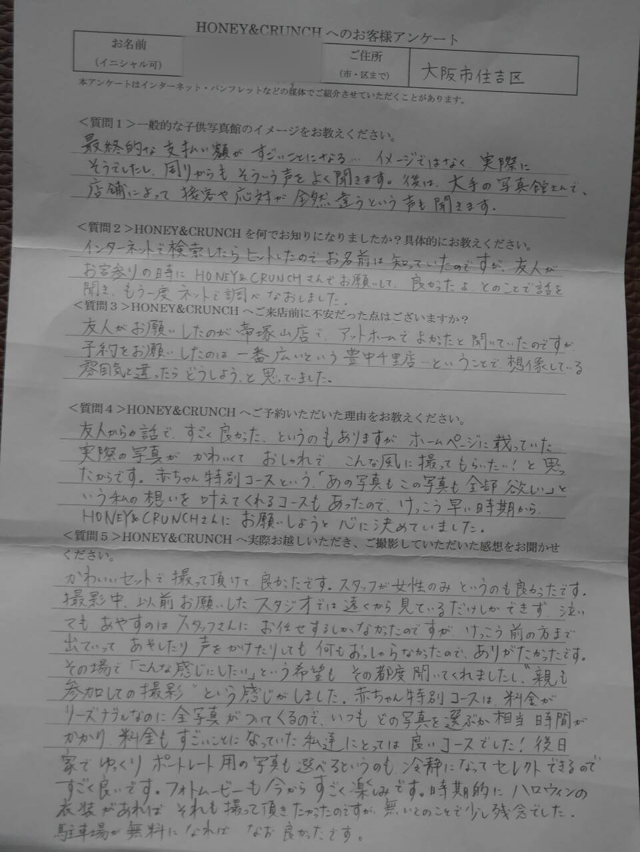 HONEY&CRUNCH へのお客様アンケート
お名前
(イニシャル可)
ご住所
(市・区まで)
大阪市住吉区
本アンケートはインターネット・パンフレットなどの媒体でご紹介させていただくことがあります。
<質問1>一般的な子供写真館のイメージをお教えください。
最終的な支払い額がすごいことになる… イメージではなく 実際に
そうでしたし、周りからもそういう声をよく聞きます。後は、大手の写真館さんで、
店舗によって 接客や応対が 全然違うという声も聞きます。
<質問2>HONEY&CRUNCH を何でお知りになりましたか？具体的にお教えください。
インターネットで検索したらヒットしたのでお名前は知っていたのですが、友人が
お宮参りの時に HONEY&CRUNCHさんでお願いして、良かったよ とのことで話を
聞き、もう一度 ネットで調べなおしました。
<質問3>HONEY&CRUNCH へご来店前に不安だった点はございますか？
友人がお願いしたのが 帝塚山店で、アットホームでよかったと聞いていたのですが
予約をお願いしたのは 一番広いという 豊中千里店…ということで 想像している
雰囲気と違ったらどうしよう、と思っていました。
<質問4>HONEY&CRUNCH へご予約いただいた理由をお教えください。
友人からの話で、すごく良かった、というのもありますが ホームページに載っていた
実際の写真が かわいくて おしゃれで こんな風に撮ってもらいたい！と思っ
たからです。赤ちゃん特別コースという、「あの写真もこの写真も全部欲しい」と
いう私の想いを叶えてくれるコースもあったので、けっこう早い時期から
HONEY&CRUNCHさんに お願いしようと 心に決めていました。
<質問5>HONEY&CRUNCH へ実際お越しいただき、ご撮影していただいた感想をお聞かせ
ください。
かわいいセットで 撮って頂けて 良かったです。スタッフが女性のみ というのも良かったです。
撮影中、以前お願いしたスタジオでは 遠くから見ているだけしかできず 泣い
ても あやすのは スタッフさんに お任せするしかなかったのですが けっこう前の方まで
出ていって あやしたり 声をかけたりしても 何もおっしゃらなかったので、ありがたかったです。
その場で「こんな感じにしたい」という希望も その都度 聞いてくれましたし、"親も
参加しての撮影" という感じがしました。赤ちゃん特別コースは、料金が
リーズナブルなのに 全写真がついてくるので、いつも どの写真を選ぶか相当時間が
かかり 料金もすごいことになっていた私達にとっては 良いコースでした！後日
家でゆっくり ポートレート用の写真も選べるというのも 冷静になってセレクトできるので
すごく良いです。フォトムービーも今から すごく楽しみです。時期的に ハロウィンの
衣装があれば それも撮って頂きたかったのですが、無いとのことで少し残念でした。
駐車場が 無料になれば なお良かったです。